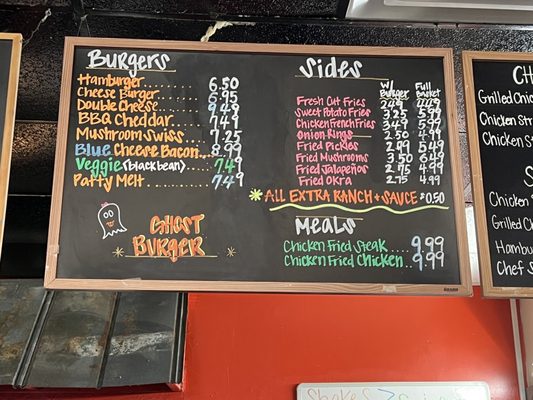 Burgers
Hamburger 6.50
Cheese Burger 6.95
Double Cheese 9.49
BBQ Cheddar 7.49
Mushroom Swiss 7.25
Blue Cheese Bacon 8.99
Veggie (black bean) 7.49
Patty Melt 7.49
Ghost
Burger
Sides
W/ Burger Full Basket
Fresh Cut Fries 2.49 4.49
Sweet Potato Fries 3.25 5.99
Chicken French Fries 3.49
Onion Rings 2.50 4.99
Fried Pickles 2.99 5.49
Fried Mushrooms 3.50 6.49
Fried Jalapeños 2.75 4.99
Fried Okra 2.75 4.99
All Extra Ranch + Sauce $0.50
Meals
Chicken Fried Steak 9.99
Chicken Fried Chicken 9.99
Ch
Grilled Chick
Chicken Str
Chicken S
S
Chicken
Grilled C
Hambu
Chef S